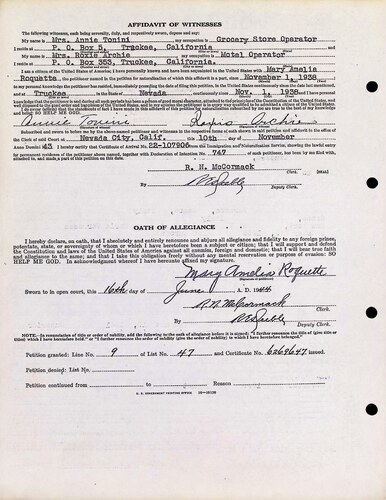 AFFIDAVIT OF WITNESSES
The following witnesses, each being severally, duly, and respectively sworn, depose and say:
My name is Mrs. Annie Tonini , my occupation is Grocery Store Operator
I reside at P. O. Box 5, Truckee, California
My name is Mrs. Roxie Archie , my occupation is Motel Operator
I reside at P. O. Box 353, Truckee, California.
I am a citizen of the United States of America; I have personally known and have been acquainted in the United States with Mary Amelia
Roquette , the petitioner named in the petition for naturalization of which this affidavit is a part, since November 1, 1938
to my personal knowledge the petitioner has resided, immediately preceding the date of filing this petition, in the United States continuously since the date last mentioned,
and at Truckee , in the State of Nevada continuously since Nov. 1, 1938 and I have personal
knowledge that the petitioner is and during all such periods has been a person of good moral character, attached to the principles of the Constitution of the United States, and
well disposed to the good order and happiness of the United States, and in my opinion the petitioner is in every way qualified to be admitted a citizen of the United States.
SO HELP ME GOD.
Annie Tonini Roxie Archie
Subscribed and sworn to before me by the above-named petitioner and witnesses in the respective forms of oath shown in said petition and affidavit in the office of
the Clerk of said Court at Nevada City, Calif. this 10th day of November
Anno Domini 1943 I hereby certify that Certificate of Arrival No. 22-107906 from the Immigration and Naturalization Service, showing the lawful entry
for permanent residence of the petitioner above named, together with Declaration of Intention No. 747 of such petitioner, has been by me filed with,
attached to, and made a part of this petition on this date.
R. N. McCormack
Clerk. [SEAL]
By
Deputy Clerk.
OATH OF ALLEGIANCE
I hereby declare, on oath, that I absolutely and entirely renounce and abjure all allegiance and fidelity to any foreign prince,
potentate, state, or sovereignty of whom or which I have heretofore been a subject or citizen; that I will support and defend
the Constitution and laws of the United States of America against all enemies, foreign and domestic; that I will bear true faith
and allegiance to the same; and that I take this obligation freely without any mental reservation or purpose of evasion: SO
HELP ME GOD. In acknowledgment whereof I have hereunto affixed my signature.
Mary Amelia Roquette
(Signature of petitioner)
Sworn to in open court, this 16th day of June , A. D. 1944
R. N. McCormack
Clerk.
By
Deputy Clerk.
NOTE.—In renunciation of title or order of nobility, add the following to the oath of allegiance before it is signed: "I further renounce the title of (give title or
titles) which I have heretofore held," or "I further renounce the order of nobility (give the order of nobility) to which I have heretofore belonged."
Petition granted: Line No. 9 of List No. 47 and Certificate No. 6262647 issued.
Petition denied: List No.
Petition continued from to Reason
U. S. GOVERNMENT PRINTING OFFICE